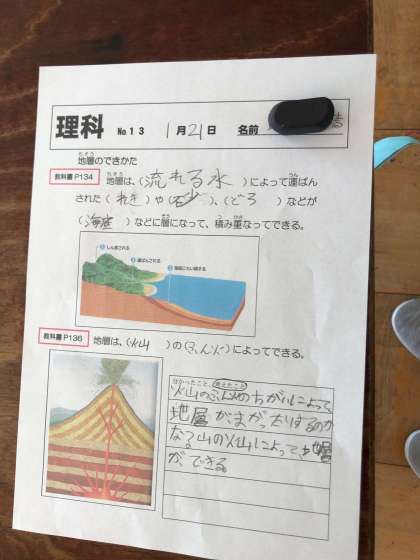 理科 No13 1月21日 名前
地層のできかた
教科書P134 地層は、(流れる水)によって運ばん
された(れき)や(砂)、(どろ)などが
(海底)などに層になって、積み重なってできる。
①しん食される
②運ぱんされる
③海底にたい積する
教科書P136 地層は、(火山)の(ふん火)によってできる。
分かったこと、考えたこと
火山のふん火のちがいによって、
地層がまがったりするのか
な?山の火山によって、地層
ができる。